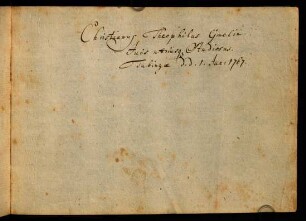 Christianus Theophilus Gmelin
Juris utriusq Studiosus.
Tubingae d. 1. Jan: 1767.